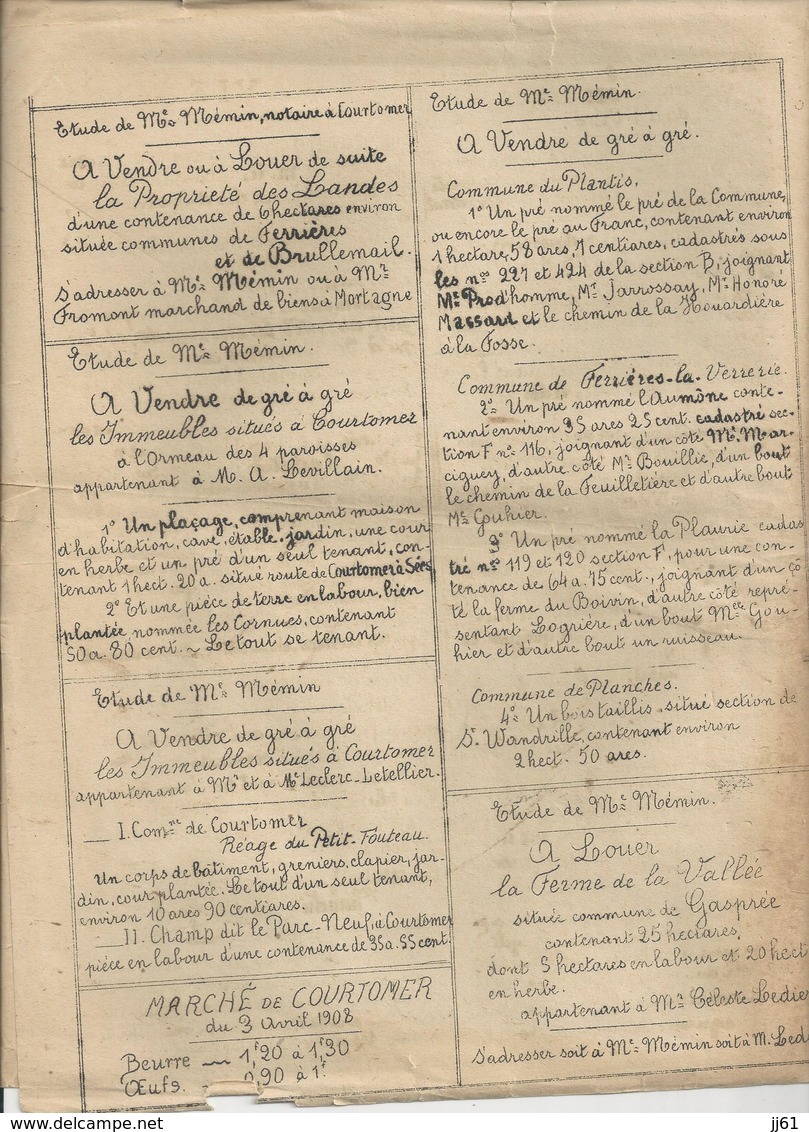 Etude de Me Mémin, notaire à Courtomer
A Vendre ou à Louer de suite
la Proprieté des Landes
d'une contenance de 6 hectares environ
située communes de Ferrières
et de Brullemail.
S'adresser à Me Mémin ou à Mr
Fromont marchand de biens à Mortagne
Etude de Me Mémin.
A Vendre de gré à gré
les Immeubles situés à Courtomer
à l'Ormeau des 4 paroisses
appartenant à M. A. Levillain.
1° Un plaçage, comprenant maison
d'habitation, cave, étable, jardin, une cour
en herbe et un pré d'un seul tenant, con-
tenant 1 hect. 20 a. situé route de Courtomer à Sées
2° Et une pièce de terre en labour, bien
plantée, nommée les Cornues, contenant
50 a. 80 cent. ~ Le tout se tenant.
Etude de Me Mémin
A Vendre de gré à gré
les Immeubles situés à Courtomer
appartenant à Mr et à Me Leclerc-Letellier.
I. Comne de Courtomer
Réage du Petit-Fouteau.
Un corps de bâtiment, greniers, clapier, jar-
din, cour plantée. Le tout d'un seul tenant,
environ 10 ares 90 centiares.
II. Champ dit le Parc-Neuf, à Courtomer
pièce en labour d'une contenance de 35 a. 55 cent.
MARCHÉ DE COURTOMER
du 3 Avril 1908
Beurre — 1f20 à 1f30
Œufs. - 0,90 à 1f.
Etude de Me Mémin.
A Vendre de gré à gré.
Commune du Plantis.
1° Un pré nommé le pré de la Commune,
ou encore le pré au Franc, contenant environ
1 hectare, 58 ares, 7 centiares, cadastrés sous
les nos 227 et 424 de la section B, joignant
Mr Prod'homme, Mr Jarrossay, Mr Honoré
Massard et le chemin de la Houardière
à la Fosse.
Commune de Ferrières-la-Verrerie.
2° Un pré nommé l'Aumône conte-
nant environ 35 ares 25 cent. cadastré sec-
tion F n° 116, joignant d'un côté Mr Mar-
ciguey, d'autre côté Mr Bouillie, d'un bout
le chemin de la Feuilletière et d'autre bout
Mr Gouhier.
3° Un pré nommé la Plaurie cadas
tré nos 119 et 120 section F, pour une con-
tenance de 64 a. 75 cent., joignant d'un cô
té la ferme du Boivin, d'autre côté repré-
sentant Logrière, d'un bout Melle Gou-
hier et d'autre bout un ruisseau.
Commune de Planches.
4° Un bois taillis, situé section de
St Wandrille, contenant environ
2 hect. 50 ares.
Etude de Me Mémin.
A Louer
la Ferme de la Vallée
située commune de Gasprée
contenant 25 hectares,
dont 5 hectares en labour et 20 hect
en herbe.
appartenant à Mr Céleste Ledier
S'adresser soit à Me Mémin soit à M. Led
jj61